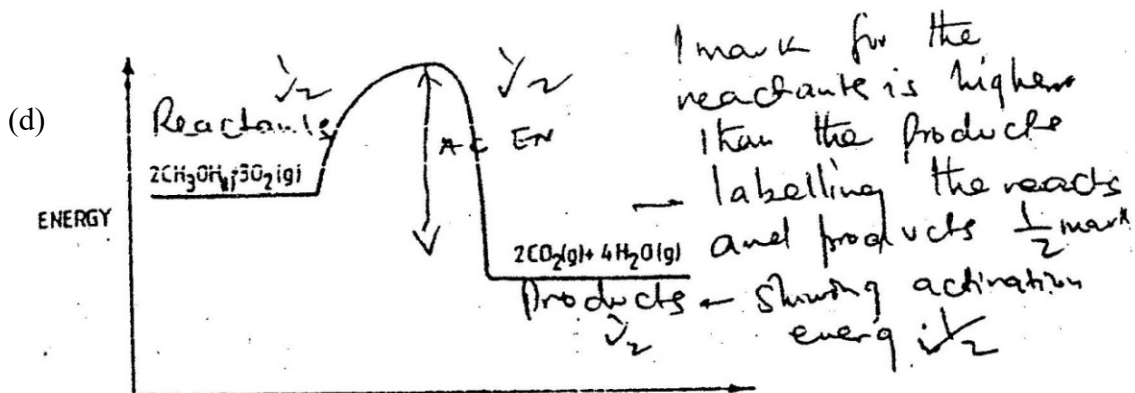 (d)
Reactants ½
½
2CH3OH(l)+3O2(g)
AC EN
ENERGY
2CO2(g)+ 4H2O(g)
Products
½
1 mark for the
reactants is higher
than the products
— labelling the reacts
and products ½ mark
← showing activation
energ ½